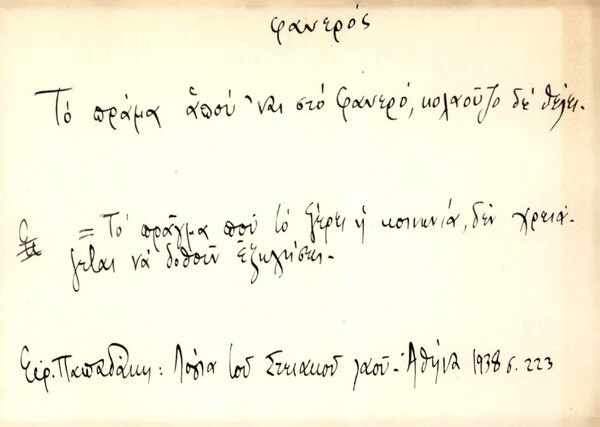 φανερός
Τό πράμα ἁπού 'ναι στό φανερό, κολαοῦζο δέ θέλει.
= Τό πρᾶγμα πού τό ξέρει ἡ κοινωνία, δέν χρειά-
ζεται νά δοθοῦν ἐξηγήσεις.
Εἰρ. Παπαδάκη: Λόγια τοῦ Στειακοῦ λαοῦ - Ἀθήνα 1938 σ. 223